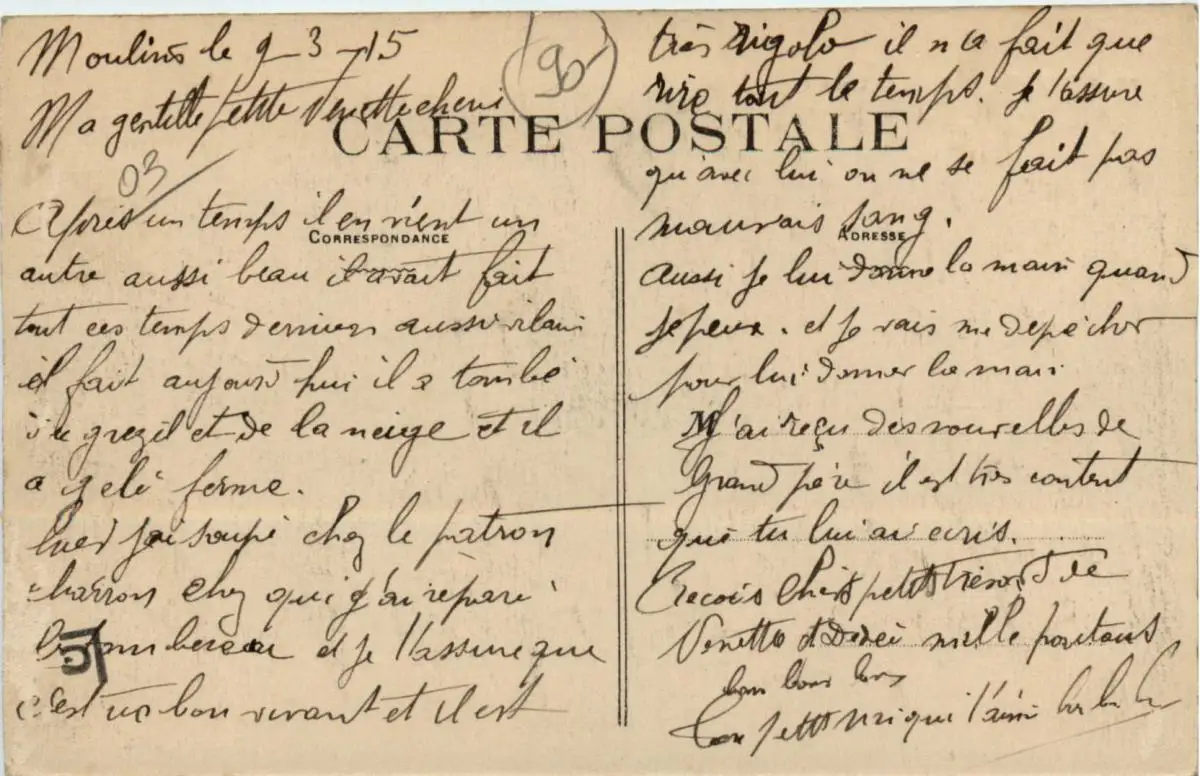 Moulins le 9-3-15
90
Ma gentille petite Venette cheri
CARTE POSTALE
03
Après un temps il en vient un
CORRESPONDANCE
autre aussi beau il avait fait
tout ces temps derniers aussi vilain
il fait aujourd'hui il a tombé
du grezil et de la neige et il
a gelé ferme.
hier j'ai soupé chez le patron
charron chez qui j'ai réparé
le tombereau et je t'assure que
c'est un bon vivant et il est
très rigolo il n'a fait que
rire tout le temps. Je t'assure
qu'avec lui on ne se fait pas
mauvais sang.
ADRESSE
aussi je lui donne la main quand
je peux. et je vais me depêcher
pour lui donner la main
M
J'ai reçu des nouvelles de
Grand père il est très content
que tu lui ai ecris.
Recois Chers petits Trésors de
Venette et Dédé mille poutous
bon bons
Ton petit qui t'aime